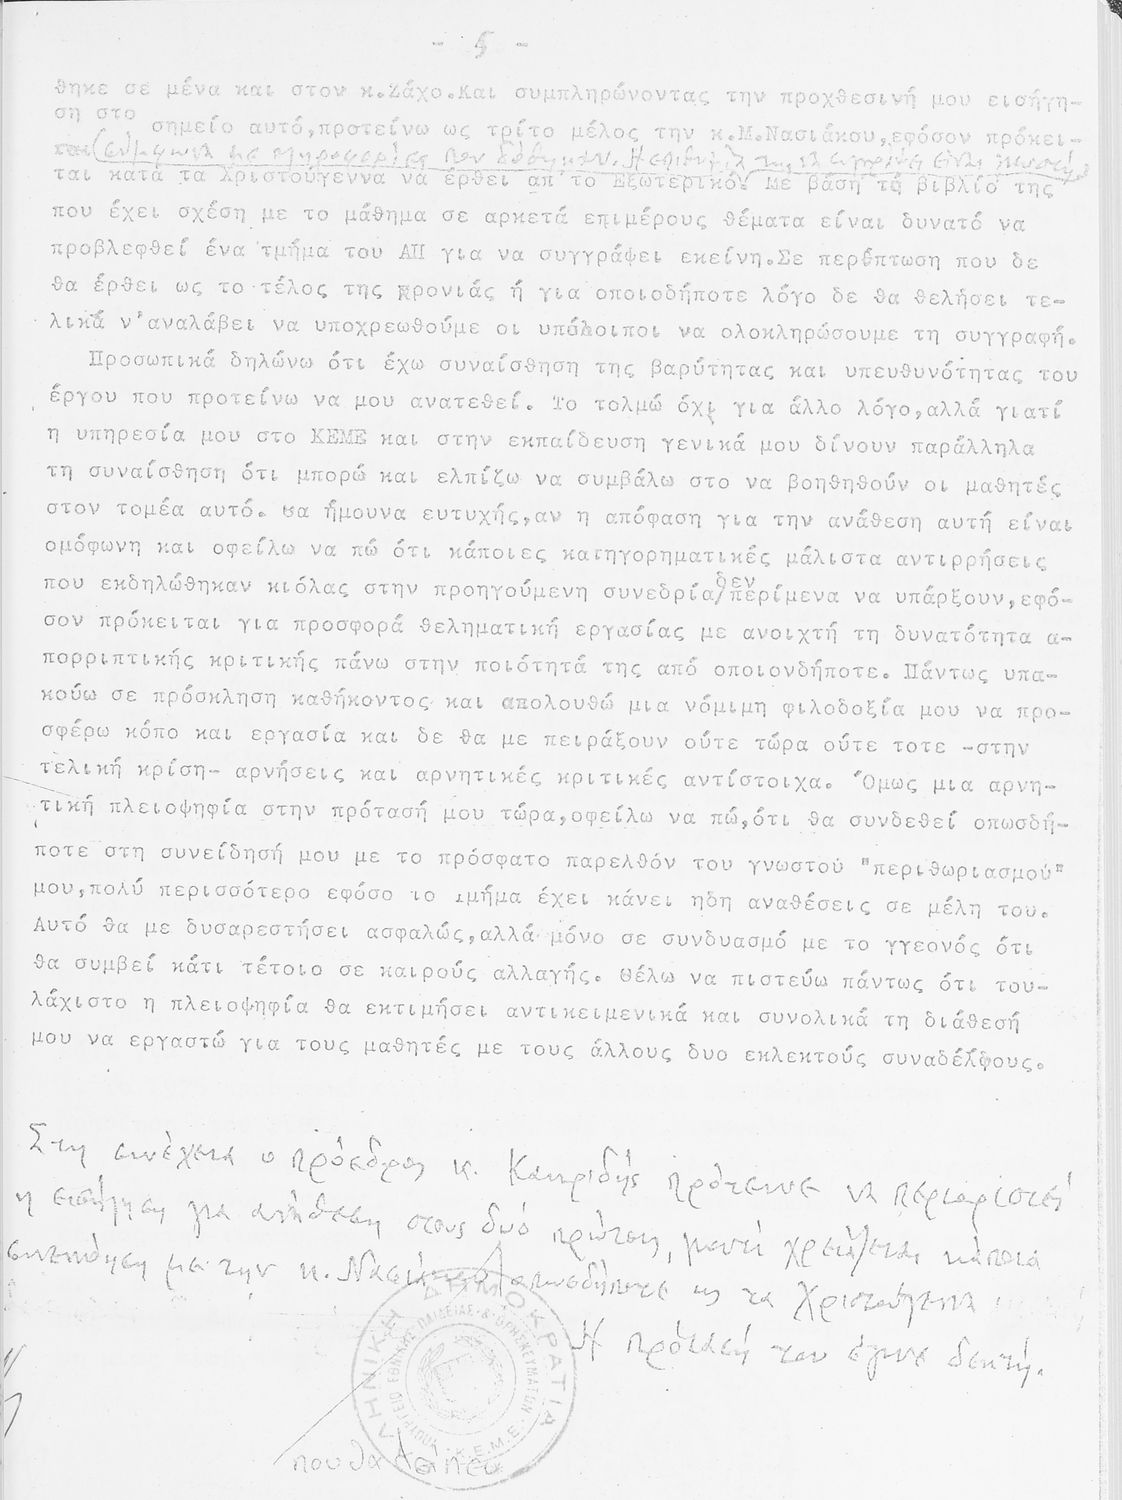 - 5 -
θηκε σε μένα και στον κ.Ζάχο.Και συμπληρώνοντας την προχθεσινή μου εισήγη-
ση στο σημείο αυτό,προτείνω ως τρίτο μέλος την κ.Μ.Νασιάκου,εφόσον πρόκει-
(σύμφωνα με πληροφορίες που δόθηκαν. Η επιθυμία της να είναι
ται κατά τα Χριστούγεννα να έρθει απ'το Εξωτερικό. Με βάση το βιβλίο της
που έχει σχέση με το μάθημα σε αρκετά επιμέρους θέματα είναι δυνατό να
προβλεφθεί ένα τμήμα του ΑΠ για να συγγράψει εκείνη.Σε περίπτωση που δε
θα έρθει ως το τέλος της χρονιάς ή για οποιοδήποτε λόγο δε θα θελήσει τε-
λικά ν'αναλάβει να υποχρεωθούμε οι υπόλοιποι να ολοκληρώσουμε τη συγγραφή.
Προσωπικά δηλώνω ότι έχω συναίσθηση της βαρύτητας και υπευθυνότητας του
έργου που προτείνω να μου ανατεθεί. Το τολμώ όχι για άλλο λόγο,αλλά γιατί
η υπηρεσία μου στο ΚΕΜΕ και στην εκπαίδευση γενικά μου δίνουν παράλληλα
τη συναίσθηση ότι μπορώ και ελπίζω να συμβάλω στο να βοηθηθούν οι μαθητές
στον τομέα αυτό. Θα ήμουνα ευτυχής,αν η απόφαση για την ανάθεση αυτή είναι
ομόφωνη και οφείλω να πώ ότι κάποιες κατηγορηματικές μάλιστα αντιρρήσεις
που εκδηλώθηκαν κιόλας στην προηγούμενη συνεδρία/δεν περίμενα να υπάρξουν,εφό-
σον πρόκειται για προσφορά θεληματική εργασίας με ανοιχτή τη δυνατότητα α-
πορριπτικής κριτικής πάνω στην ποιότητά της από οποιονδήποτε. Πάντως υπα-
κούω σε πρόσκληση καθήκοντος και απολουθώ μια νόμιμη φιλοδοξία μου να προ-
σφέρω κόπο και εργασία και δε θα με πειράξουν ούτε τώρα ούτε τοτε -στην
τελική κρίση- αρνήσεις και αρνητικές κριτικές αντίστοιχα. Όμως μια αρνη-
τική πλειοψηφία στην πρότασή μου τώρα,οφείλω να πώ,ότι θα συνδεθεί οπωσδή-
ποτε στη συνείδησή μου με το πρόσφατο παρελθόν του γνωστού "περιθωριασμού"
μου,πολύ περισσότερο εφόσο το Τμήμα έχει κάνει ηδη αναθέσεις σε μέλη του.
Αυτό θα με δυσαρεστήσει ασφαλώς,αλλά μόνο σε συνδυασμό με το γγεονός ότι
θα συμβεί κάτι τέτοιο σε καιρούς αλλαγής. Θέλω να πιστεύω πάντως ότι του-
λάχιστο η πλειοψηφία θα εκτιμήσει αντικειμενικά και συνολικά τη διάθεσή
μου να εργαστώ για τους μαθητές με τους άλλους δυο εκλεκτούς συναδέλφους.
Στη συνέχεια ο πρόεδρος κ. Καπριδής πρότεινε να περιοριστεί
η εισήγηση για ανάθεση στους δυό πρώτους, γιατί χρειάζεται κάποια
συνεννόηση με την κ. Νασιάκου οπωσδήποτε ως τα Χριστούγεννα
Η πρότασή του έγινε δεκτή.
που θα λείπει
ΕΛΛΗΝΙΚΗ ΔΗΜΟΚΡΑΤΙΑ
ΥΠΟΥΡΓΕΙΟ ΕΘΝΙΚΗΣ ΠΑΙΔΕΙΑΣ & ΘΡΗΣΚΕΥΜΑΤΩΝ
Κ.Ε.Μ.Ε.